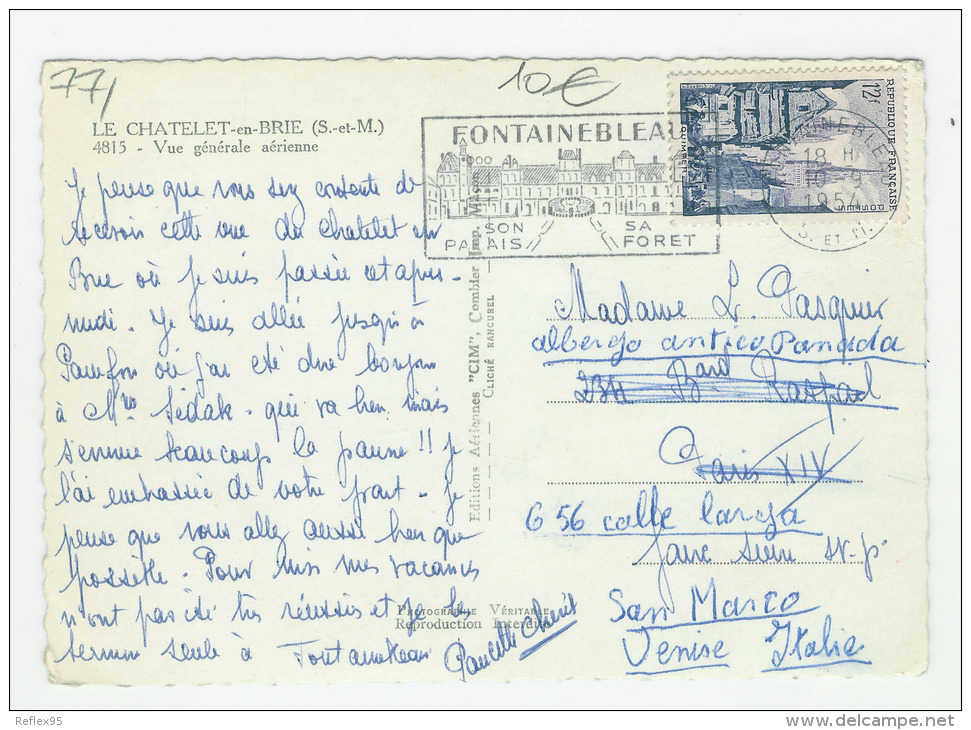 77
10€
LE CHATELET-en-BRIE (S.-et-M.)
4815 - Vue générale aérienne
Je pense que vous sez contente de
recevoir cette vue du Chatelet en
Brie où je suis passée cet apres-
midi. Je suis allée jusqu'à
où j'ai été dire bonjour
à Me Sédak. qui va bien mais
s'ennuie beaucoup la pauvre!! je
l'ai embrassée de votre part - je
pense que vous allez aussi bien que
possible. Pour moi mes vacances
n'ont pas été très réussies et je les
termine seule à Fontainebleau
FONTAINEBLEAU
SON SA
PALAIS FORET
FONTAINEBLEAU
18 H
9
1954
S. ET M.
12f
REPUBLIQUE FRANÇAISE
POSTES
QUIMPER
Editions Aériennes "CIM", Combier Imp. Macon
CLICHÉ RANCUREL
PHOTOGRAPHIE VÉRITABLE
Reproduction Interdite
Madame L. Pasquier
albergo antico Panada
234 Bard Raspail
Paris XIV
656 calle larga
faire suivre sv.p.
San Marco
Venise Italie
Reflex95
delcampe.net